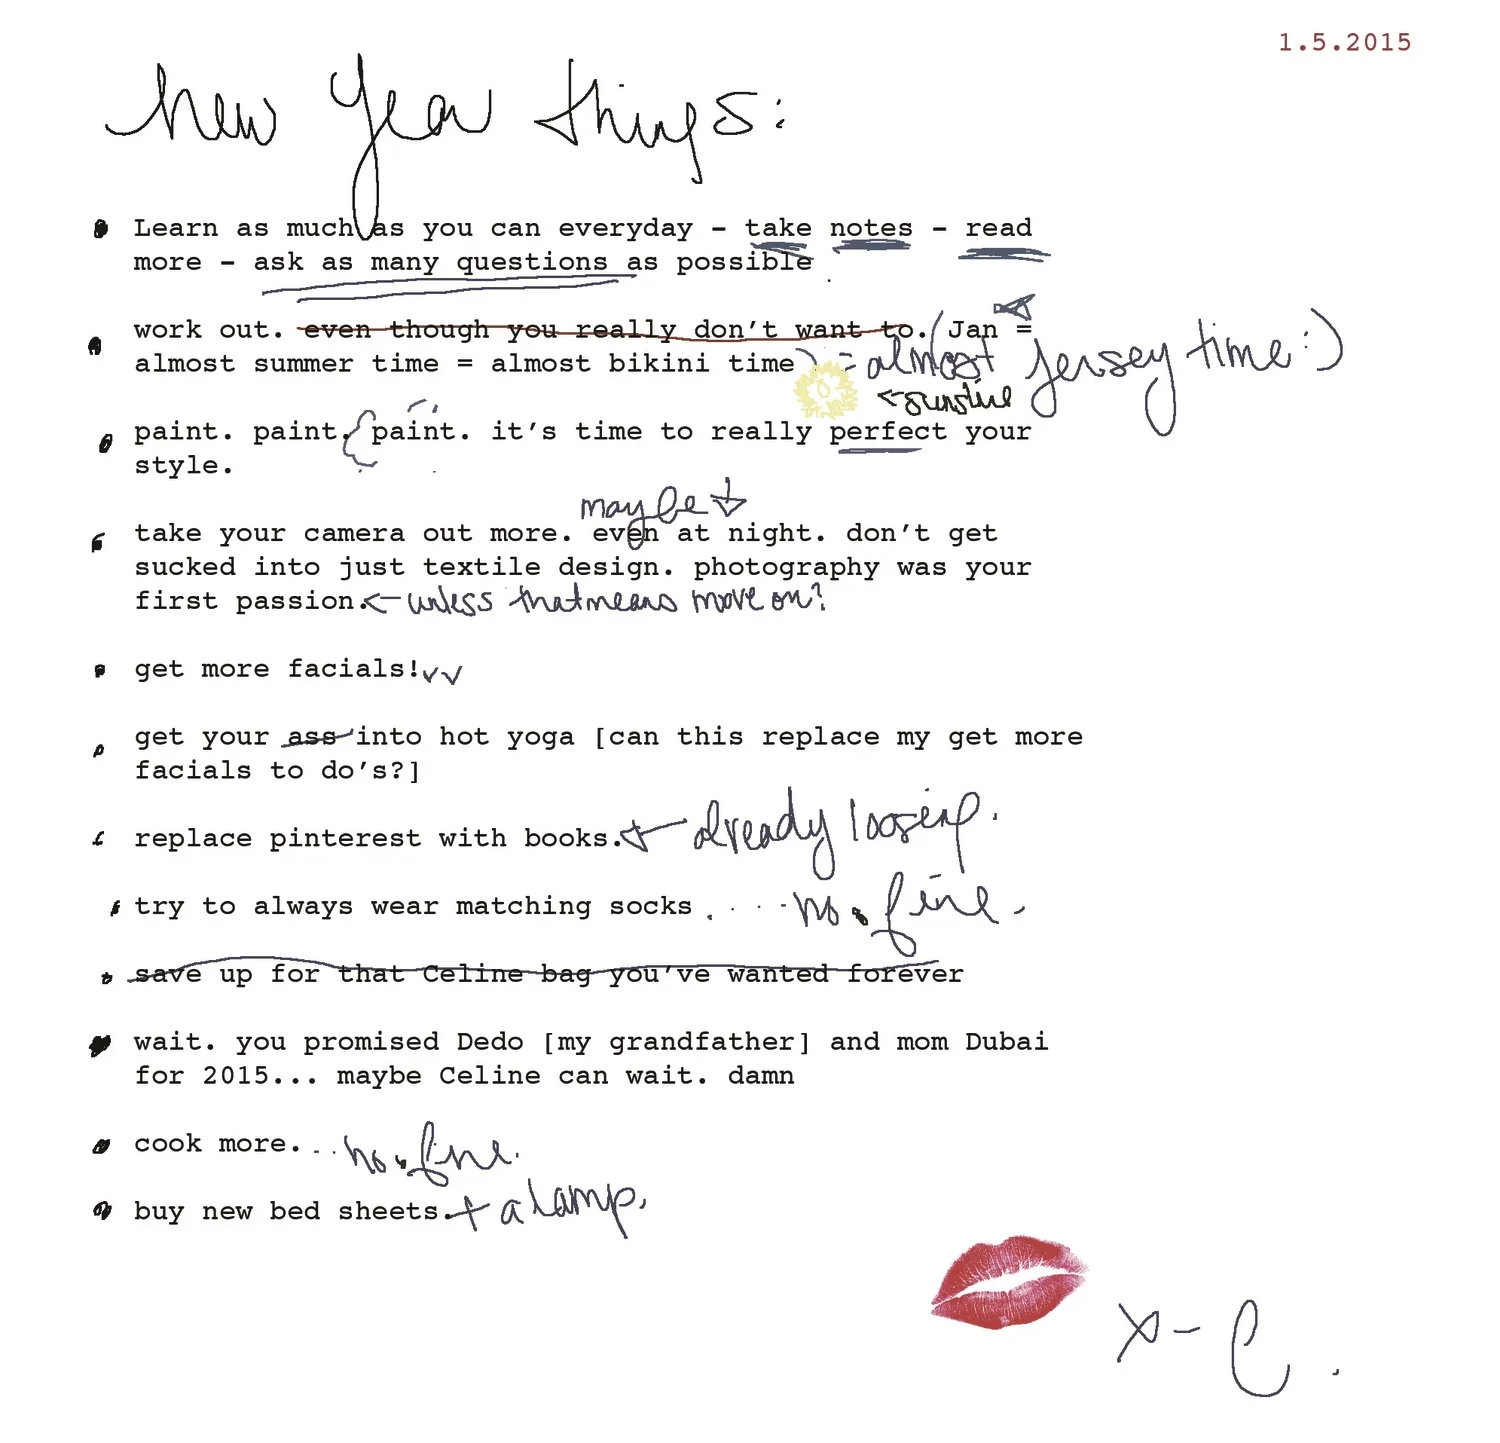 1.5.2015
New Year things:
Learn as much as you can everyday – take notes – read
more – ask as many questions as possible
work out. even though you really don't want to. (Jan =
almost summer time = almost bikini time) = almost jersey time :)
<- sunshine
paint. paint. paint. it's time to really perfect your
style.
maybe
take your camera out more. even at night. don't get
sucked into just textile design. photography was your
first passion. <- unless that means move on?
get more facials!✓✓
get your ass into hot yoga [can this replace my get more
facials to do's?]
replace pinterest with books. <- already loosing.
try to always wear matching socks .... no. fine.
save up for that Celine bag you've wanted forever
wait. you promised Dedo [my grandfather] and mom Dubai
for 2015... maybe Celine can wait. damn
cook more... no. fine.
buy new bed sheets. + a lamp.
x – C.